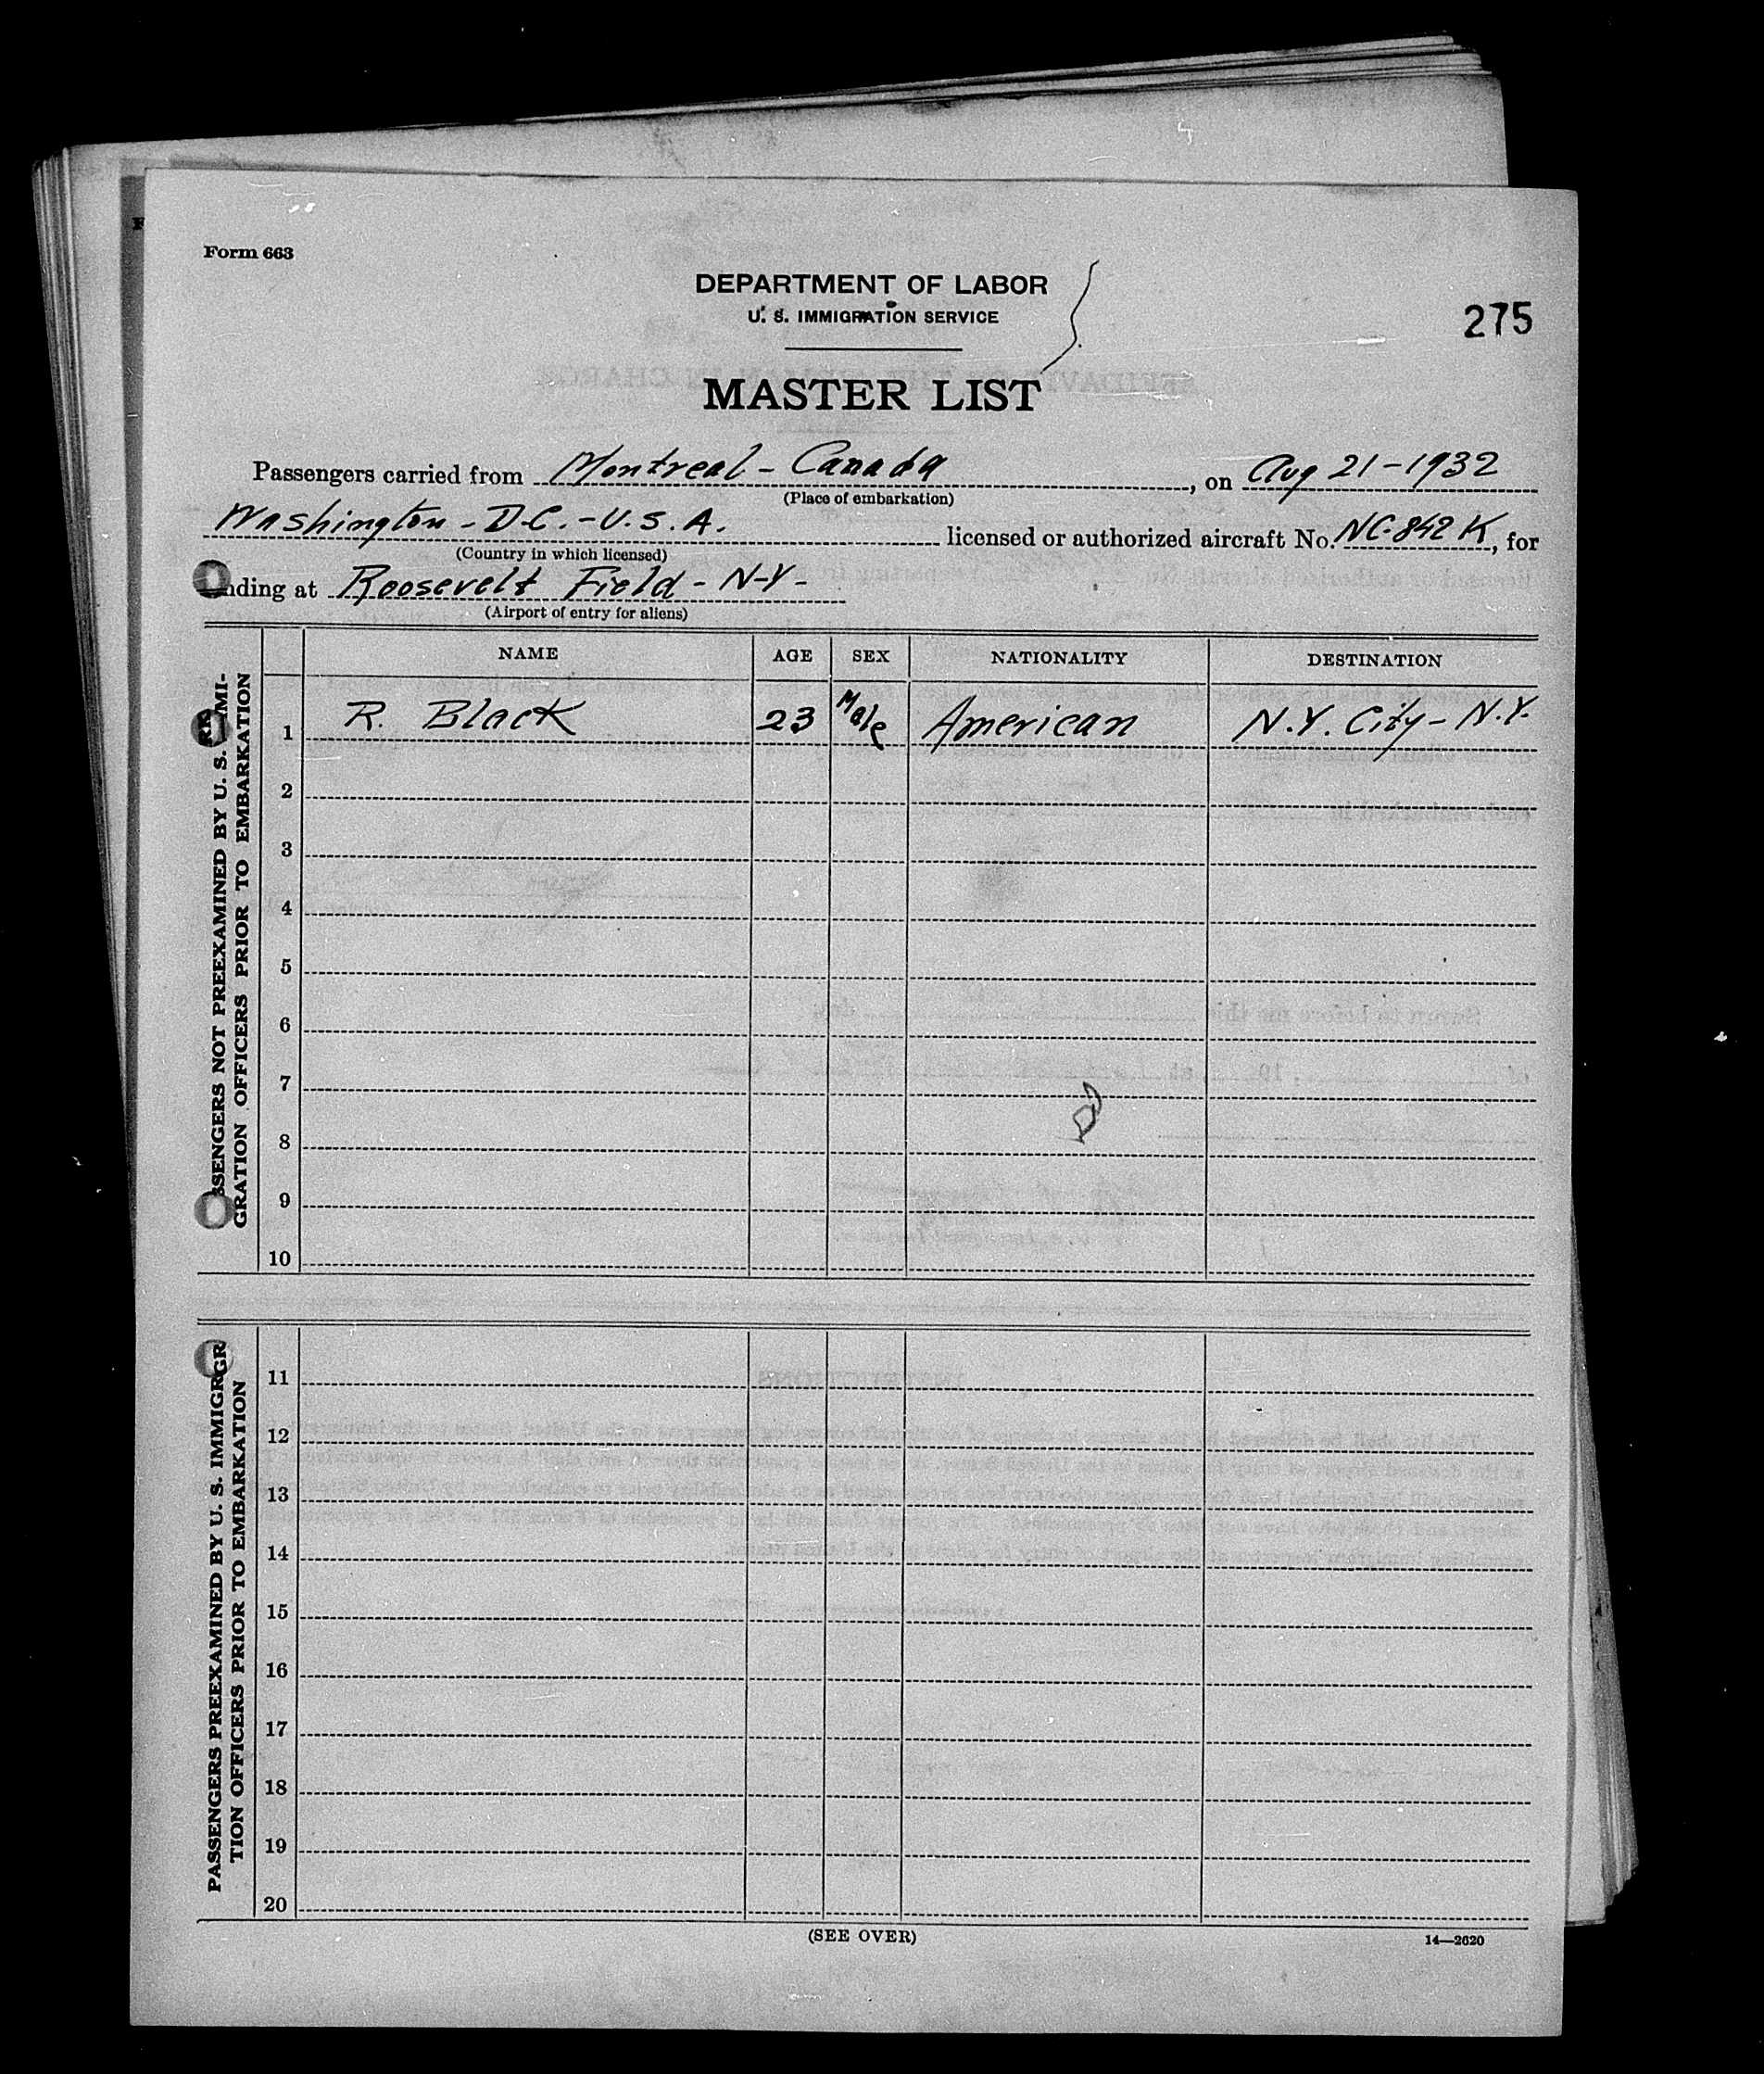 Form 663
DEPARTMENT OF LABOR
U. S. IMMIGRATION SERVICE
275
MASTER LIST
Passengers carried from Montreal - Canada, on Aug 21-1932
(Place of embarkation)
Washington - D.C. - U.S.A. licensed or authorized aircraft No. NC-842K, for
(Country in which licensed)
nding at Roosevelt Field - N-Y-
(Airport of entry for aliens)
NAME AGE SEX NATIONALITY DESTINATION
SSENGERS NOT PREEXAMINED BY U. S. IMMI-
GRATION OFFICERS PRIOR TO EMBARKATION
1 R. Black 23 Male American N.Y. City - N.Y.
2
3
4
5
6
7
8
9
10
PASSENGERS PREEXAMINED BY U. S. IMMIGR
TION OFFICERS PRIOR TO EMBARKATION
11
12
13
14
15
16
17
18
19
20
(SEE OVER)
14—2620